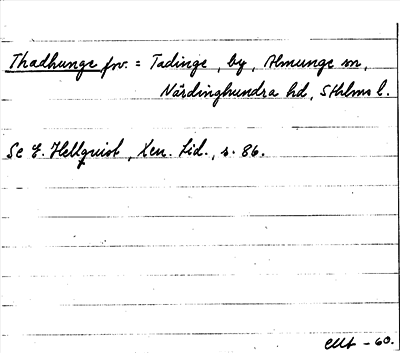 Thadhunge fnv. = Tadinge, by, Almunge sn,
Närdinghundra hd, Sthlms l.
Se E. Hellquist, Xen. Lid., s. 86.
-60.